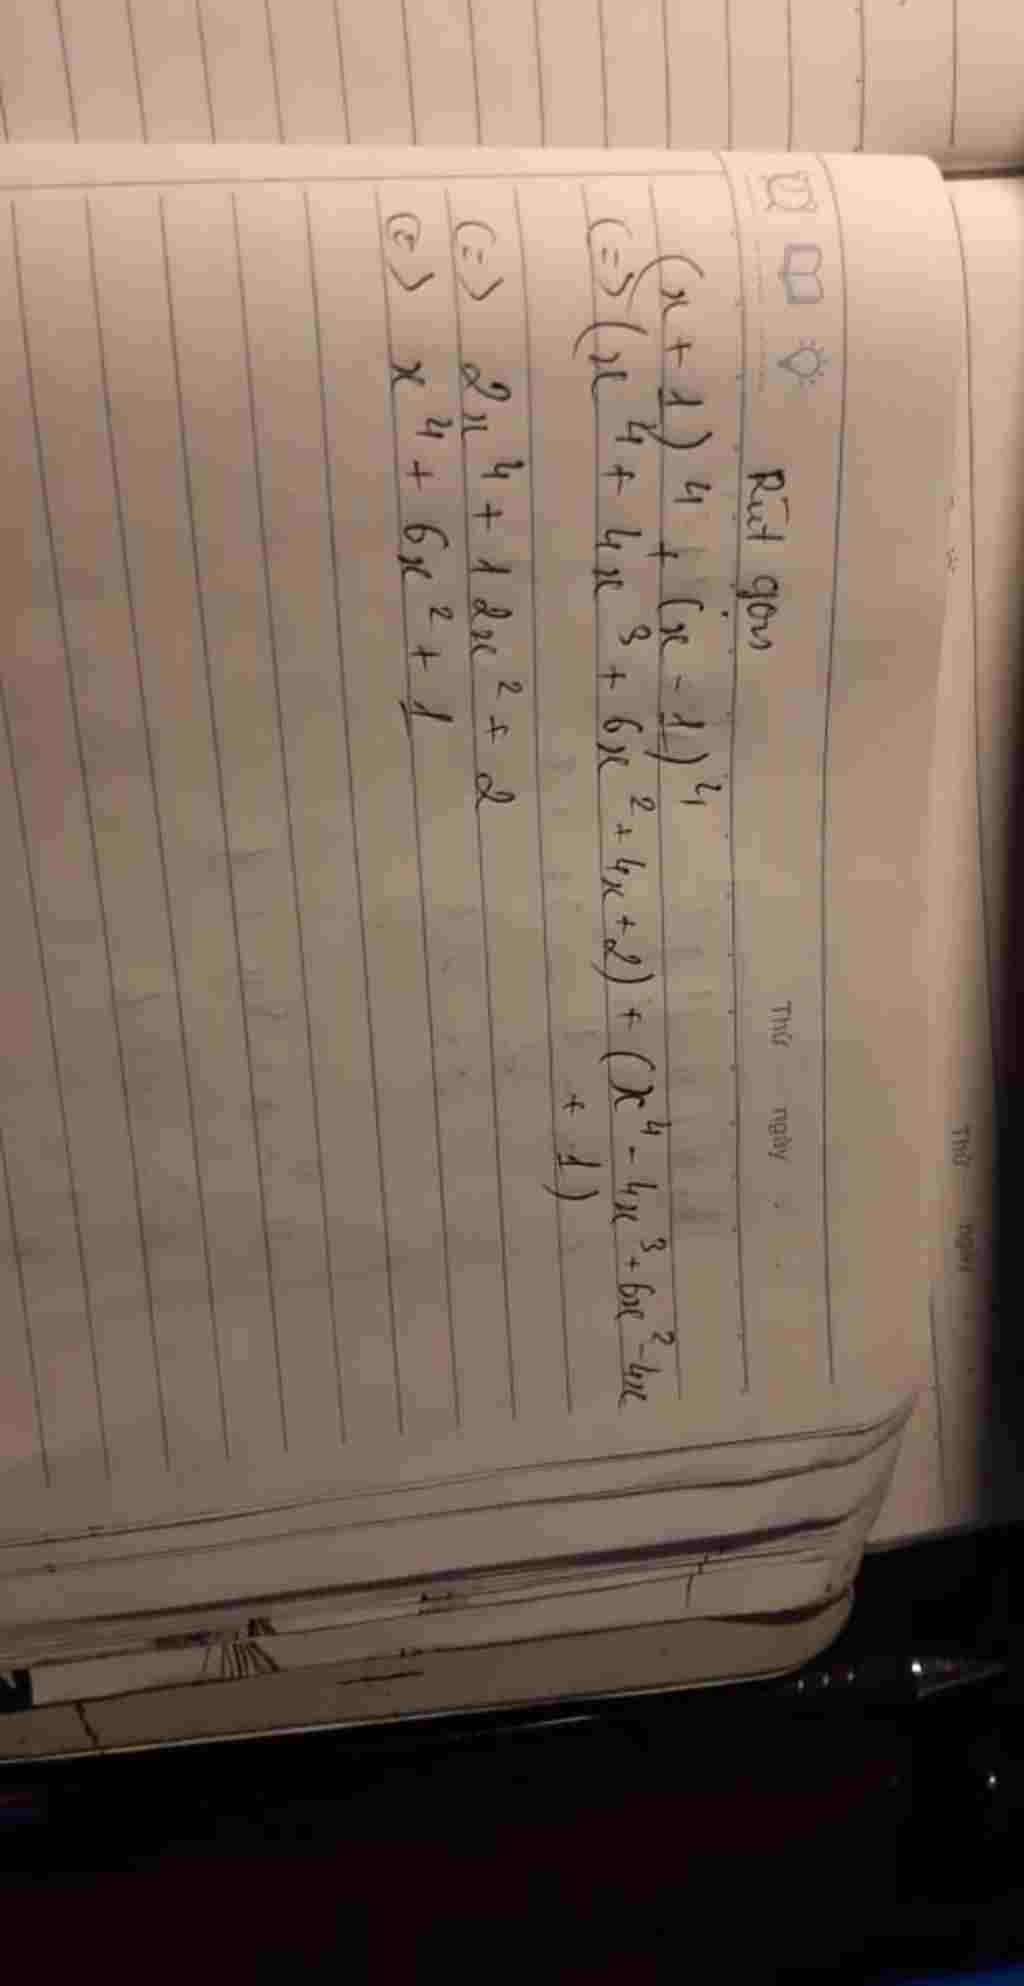 Thứ ngày
Thứ ngày
Rút gọn
(x + 1)⁴ + (x - 1)⁴
(=) (x⁴ + 4x³ + 6x² + 4x + 2) + (x⁴ - 4x³ + 6x² - 4x
+ 1)
(=) 2x⁴ + 12x² + 2
(=) x⁴ + 6x² + 1